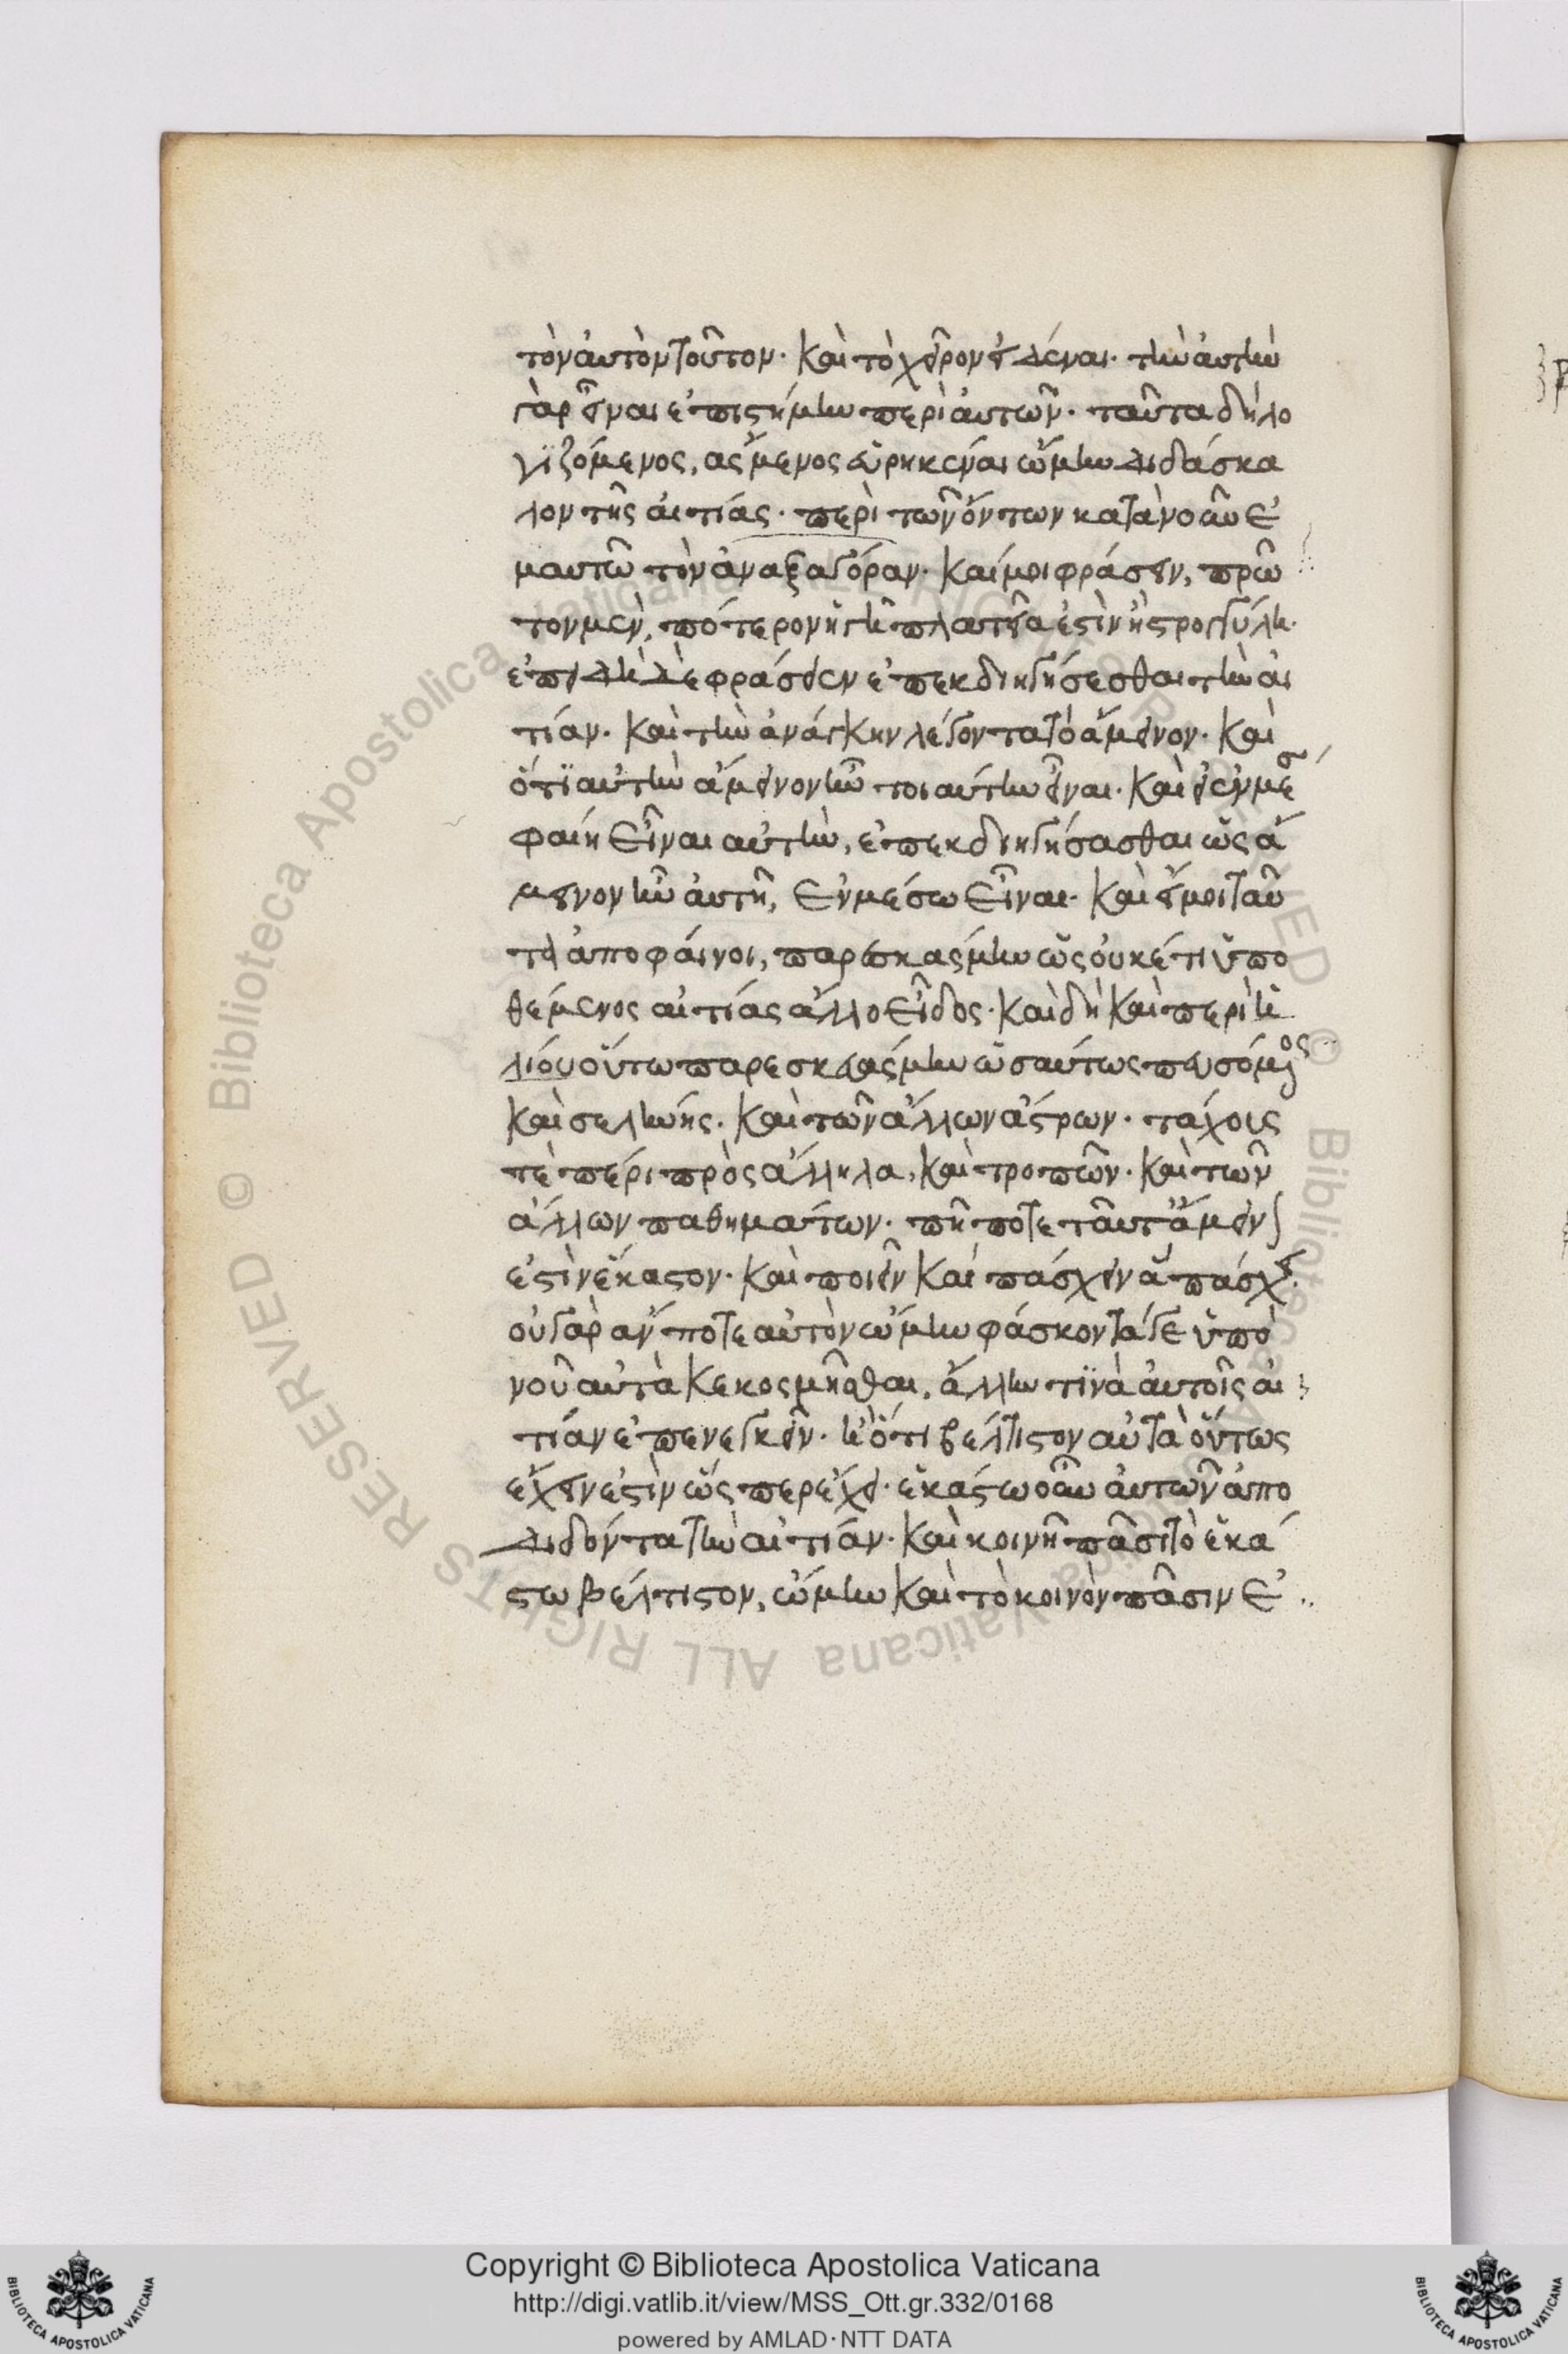 τὸν ἀυτὸν τοῦτον· καὶ τὸ χεῖρον εἰδέναι· τὴν ἀυτὴν
γὰρ εἶναι ἐπιστήμην περὶ ἀυτῶν· ταῦτα δὴ λο
γϊζόμενος, ἄσμενος εὑρηκέναι ὤμην διδάσκα
λον τῆς ἀιτίας· περὶ τῶν ὄντων κατὰ νοῦν ἐ
μαυτῶ τὸν ἀναξαγόραν· καί μοι φράσειν, πρῶ
τον μὲν, πότερον ἡ γῆ πλατεῖα ἐστὶν ἢ στρογγύλη·
ἐπειδὴ δὲ φράσειεν ἐπεκδιηγήσεσθαι τὴν αἰ
τίαν· καὶ τὴν ἀνάγκην λέγοντα τὸ ἄμεινον· καὶ
ὅτϊ αὐτὴν ἄμεινον ἦν τοιαύτην εἶναι· καὶ εἰ ἐν μέσ
φαίη εἶναι αὐτὴν, ἐπεκδιηγήσασθαι ὡς ἄ
μεινον ἦν ἀυτῆ, ἐν μέσω εἶναι· καὶ εἴ μοι ταῦ
τα ἀποφαίνοι, παρεσκάσμην ὡς οὐκέτι ὑπο
θέμενος αἰτίας ἄλλο εἶδος· καὶ δὴ καὶ περὶ ἡ
λίου οὕτω παρεσκευάσμην ὡσαύτως πευσόμενος
καὶ σελήνης· καὶ τῶν ἄλλων ἄστρων· τάχους
τὲ πέρι πρὸς ἄλληλα, καὶ τροπῶν· καὶ τῶν
ἄλλων παθημάτων· πῆ ποτε ταῦτ' ἄμειν
ἐστὶν ἕκαστον· καὶ ποιεῖν καὶ πάσχειν ἃ πάσχει.
οὐ γὰρ ἄν ποτε αὐτὸν ὤμην φάσκοντά γε ὑπὸ
νοῦ αὐτὰ κεκοσμῆσθαι, ἄλλην τϊνὰ ἀυτοῖς ἀι
τίαν ἐπενεγκεῖν· ἢ ὅτι βέλτιστον αὐτὰ οὕτως
ἔχειν ἐστὶν ὥσπερ ἔχει· ἑκάστω οὖν ἀυτῶν ἀπο
διδόντα τὴν αἰτίαν· καὶ κοινῆ πᾶσι τὸ ἑκά
στω βέλτιστον, ὤμην καὶ τὸ κοινὸν πᾶσιν ἐ
Copyright © Biblioteca Apostolica Vaticana
http://digi.vatlib.it/view/MSS_Ott.gr.332/0168
powered by AMLAD·NTT DATA
BIBLIOTECA APOSTOLICA VATICANA
BIBLIOTECA APOSTOLICA VATICANA
© Biblioteca Apostolica Vaticana ALL RIGHTS RESERVED
© Biblioteca Apostolica Vaticana ALL RIGHTS RESERVED